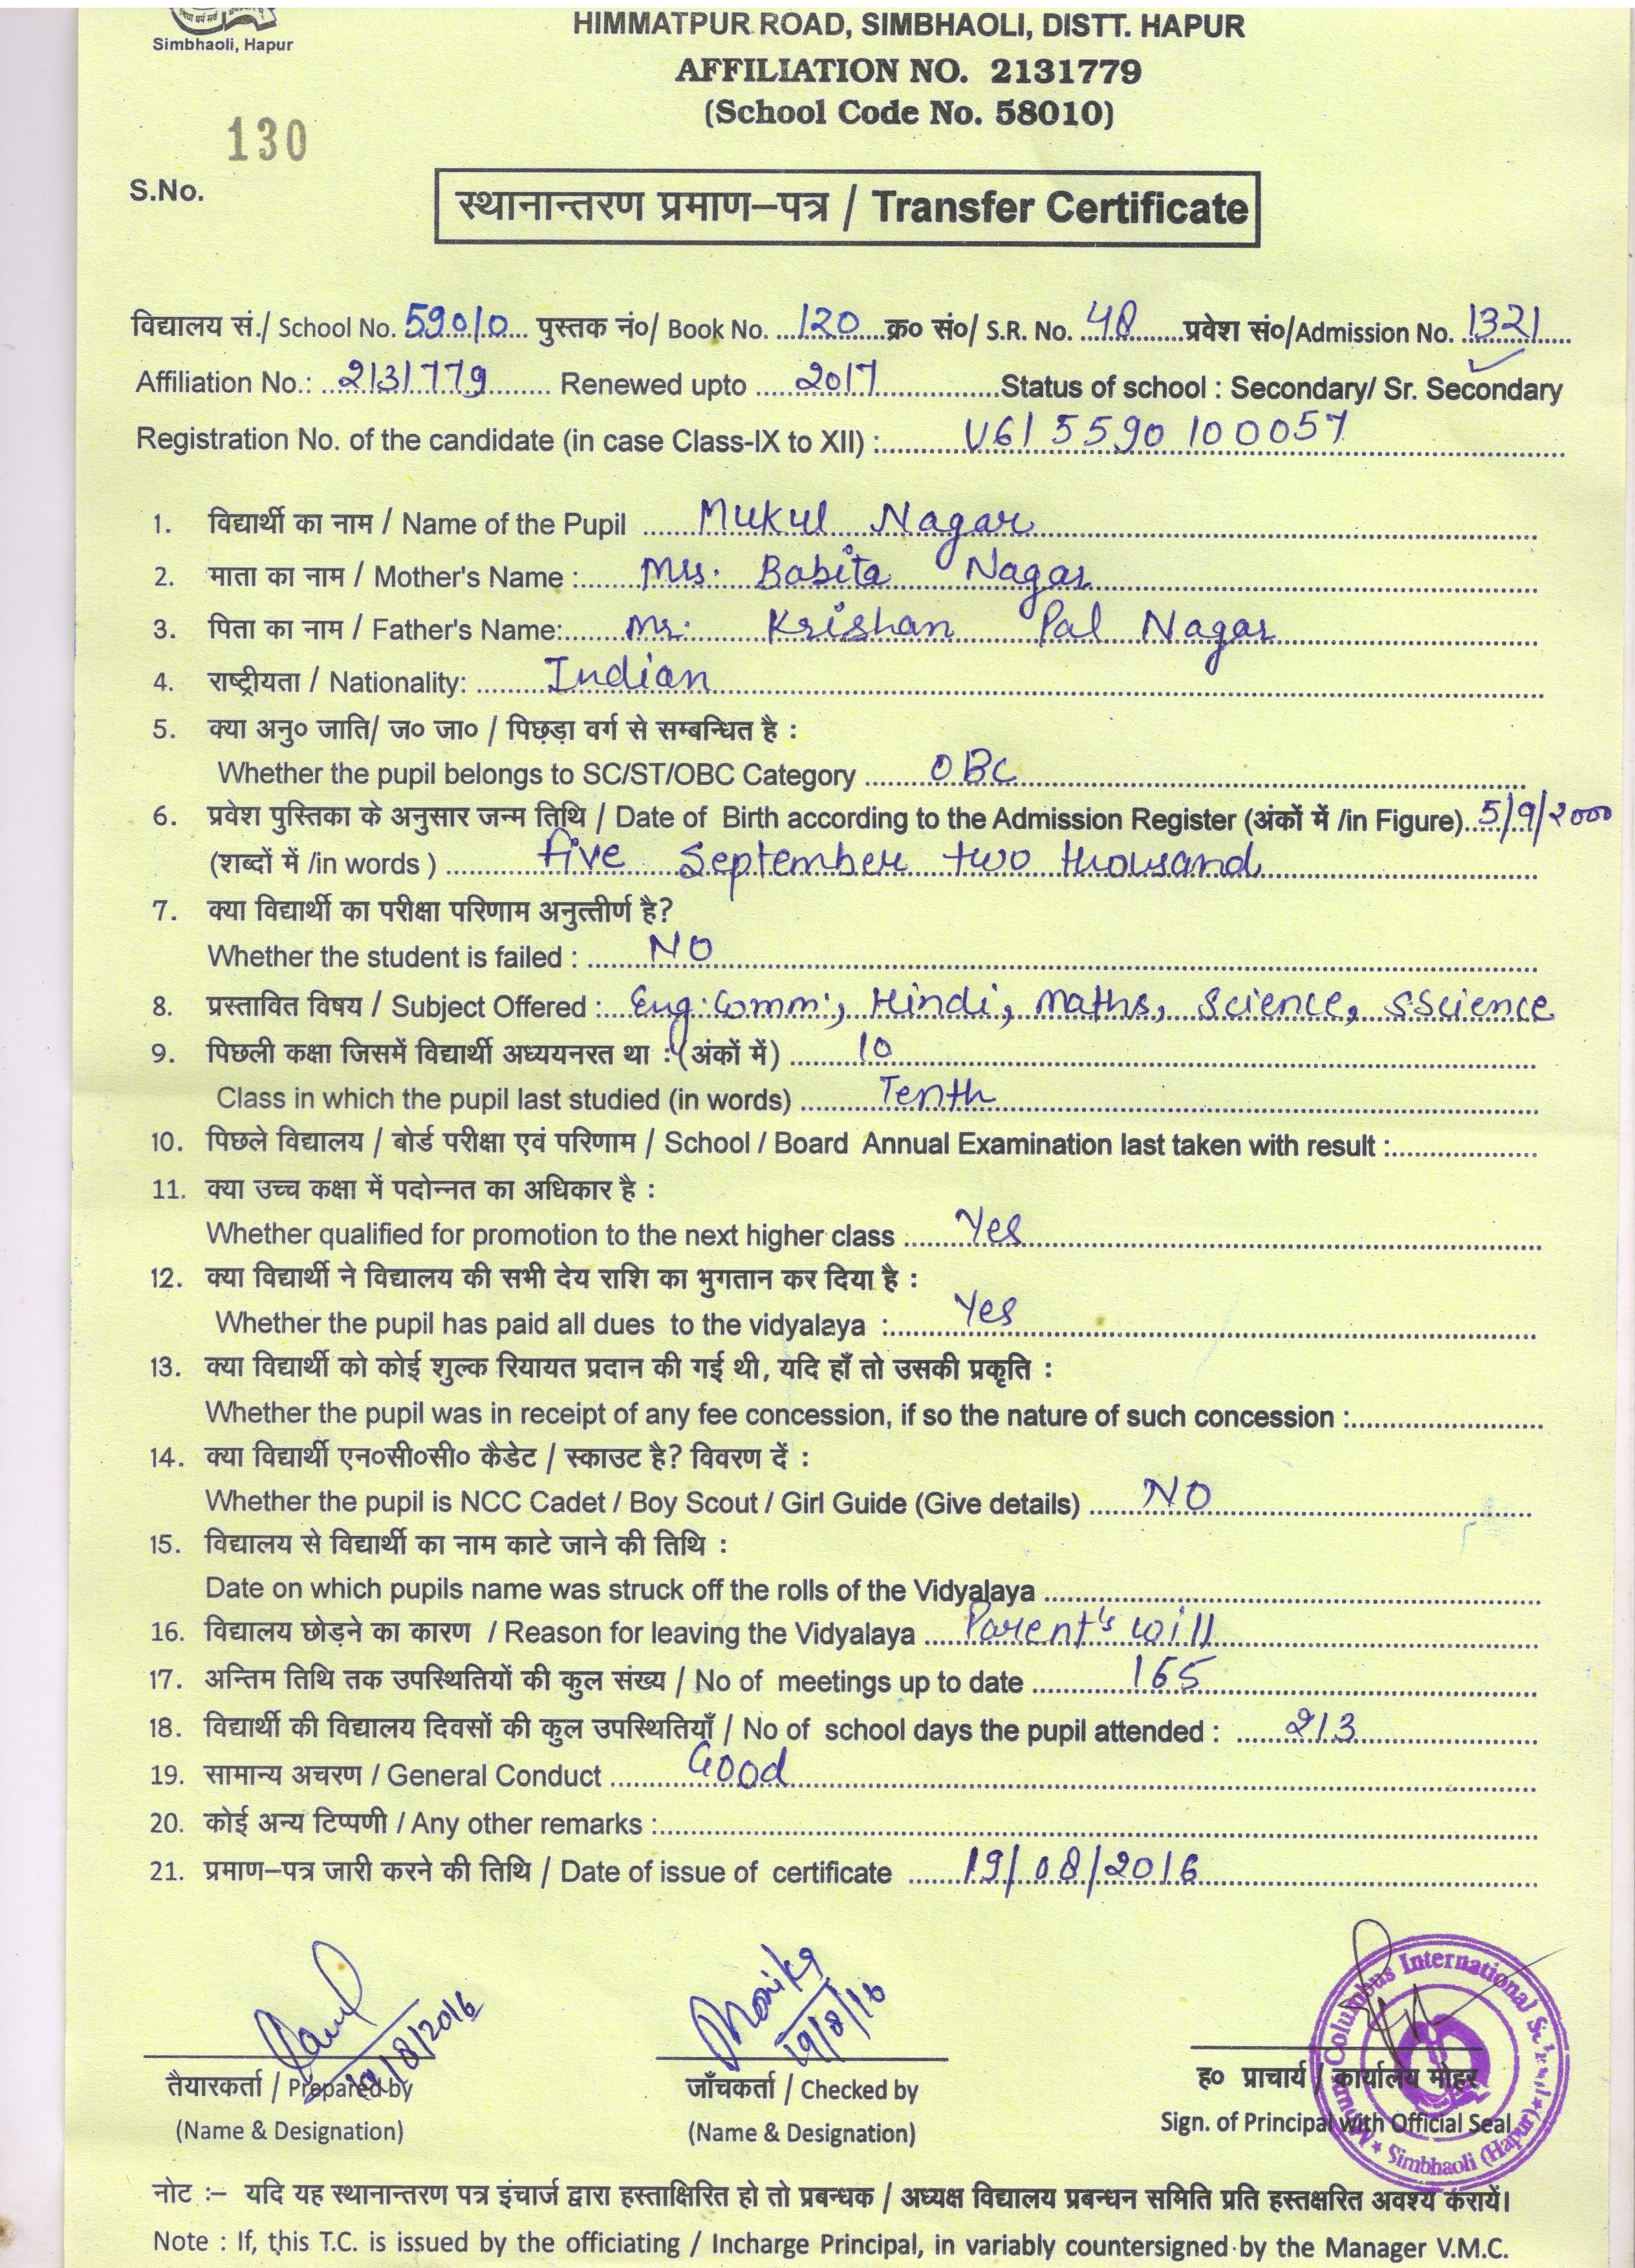 Simbhaoli, Hapur
HIMMATPUR ROAD, SIMBHAOLI, DISTT. HAPUR
AFFILIATION NO. 2131779
(School Code No. 58010)
130
S.No.
स्थानान्तरण प्रमाण–पत्र / Transfer Certificate
विद्यालय सं./ School No. 59010 पुस्तक नं०/ Book No. 120 क्र० सं०/ S.R. No. 48 प्रवेश सं०/Admission No. 1321
Affiliation No.: 2131779 Renewed upto 2017 Status of school : Secondary/ Sr. Secondary
Registration No. of the candidate (in case Class-IX to XII) : V61 5590 100057
1. विद्यार्थी का नाम / Name of the Pupil Mukul Nagar
2. माता का नाम / Mother's Name : Mrs. Babita Nagar
3. पिता का नाम / Father's Name: Mr. Krishan Pal Nagar
4. राष्ट्रीयता / Nationality: Indian
5. क्या अनु० जाति/ ज० जा० / पिछड़ा वर्ग से सम्बन्धित है :
Whether the pupil belongs to SC/ST/OBC Category OBC
6. प्रवेश पुस्तिका के अनुसार जन्म तिथि / Date of Birth according to the Admission Register (अंकों में /in Figure) 5/9/2000
(शब्दों में /in words ) five September two thousand
7. क्या विद्यार्थी का परीक्षा परिणाम अनुत्तीर्ण है?
Whether the student is failed : NO
8. प्रस्तावित विषय / Subject Offered : Eng. Comm., Hindi, Maths, Science, S.Science
9. पिछली कक्षा जिसमें विद्यार्थी अध्ययनरत था : (अंकों में) 10
Class in which the pupil last studied (in words) Tenth
10. पिछले विद्यालय / बोर्ड परीक्षा एवं परिणाम / School / Board Annual Examination last taken with result :
11. क्या उच्च कक्षा में पदोन्नत का अधिकार है :
Whether qualified for promotion to the next higher class Yes
12. क्या विद्यार्थी ने विद्यालय की सभी देय राशि का भुगतान कर दिया है :
Whether the pupil has paid all dues to the vidyalaya : Yes
13. क्या विद्यार्थी को कोई शुल्क रियायत प्रदान की गई थी, यदि हाँ तो उसकी प्रकृति :
Whether the pupil was in receipt of any fee concession, if so the nature of such concession :
14. क्या विद्यार्थी एन०सी०सी० कैडेट / स्काउट है? विवरण दें :
Whether the pupil is NCC Cadet / Boy Scout / Girl Guide (Give details) NO
15. विद्यालय से विद्यार्थी का नाम काटे जाने की तिथि :
Date on which pupils name was struck off the rolls of the Vidyalaya
16. विद्यालय छोड़ने का कारण / Reason for leaving the Vidyalaya Parent's will
17. अन्तिम तिथि तक उपस्थितियों की कुल संख्य / No of meetings up to date 165
18. विद्यार्थी की विद्यालय दिवसों की कुल उपस्थितियाँ / No of school days the pupil attended : 213
19. सामान्य अचरण / General Conduct Good
20. कोई अन्य टिप्पणी / Any other remarks :
21. प्रमाण–पत्र जारी करने की तिथि / Date of issue of certificate 19/08/2016
19/8/2016
Monika 19/8/16
Columbus International School
Simbhaoli (Hapur)
तैयारकर्ता / Prepared by जाँचकर्ता / Checked by ह० प्राचार्य / कार्यालय मोहर
(Name & Designation) (Name & Designation) Sign. of Principal with Official Seal
नोट :– यदि यह स्थानान्तरण पत्र इंचार्ज द्वारा हस्ताक्षिरित हो तो प्रबन्धक / अध्यक्ष विद्यालय प्रबन्धन समिति प्रति हस्तक्षरित अवश्य करायें।
Note : If, this T.C. is issued by the officiating / Incharge Principal, in variably countersigned by the Manager V.M.C.